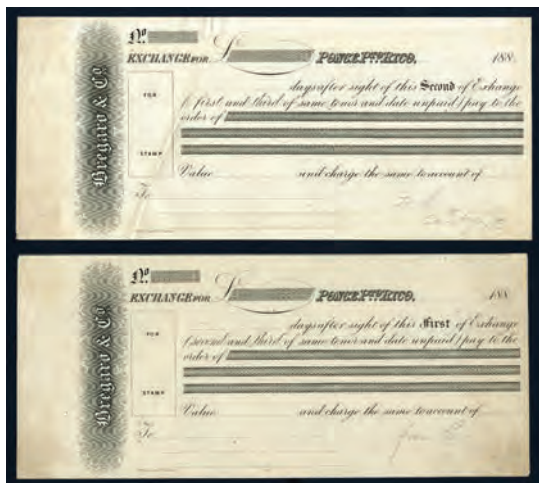 Bregaro & Co.
No
EXCHANGE FOR £ PONCE, Pto. RICO, 188
days after sight of this Second of Exchange
( first and third of same tenor and date unpaid ) pay to the
order of
FOR
STAMP
Value and charge the same to account of
To
Bregaro & Co.
No
EXCHANGE FOR £ PONCE, Pto. RICO, 188
days after sight of this First of Exchange
( second and third of same tenor and date unpaid ) pay to the
order of
FOR
STAMP
Value and charge the same to account of
To